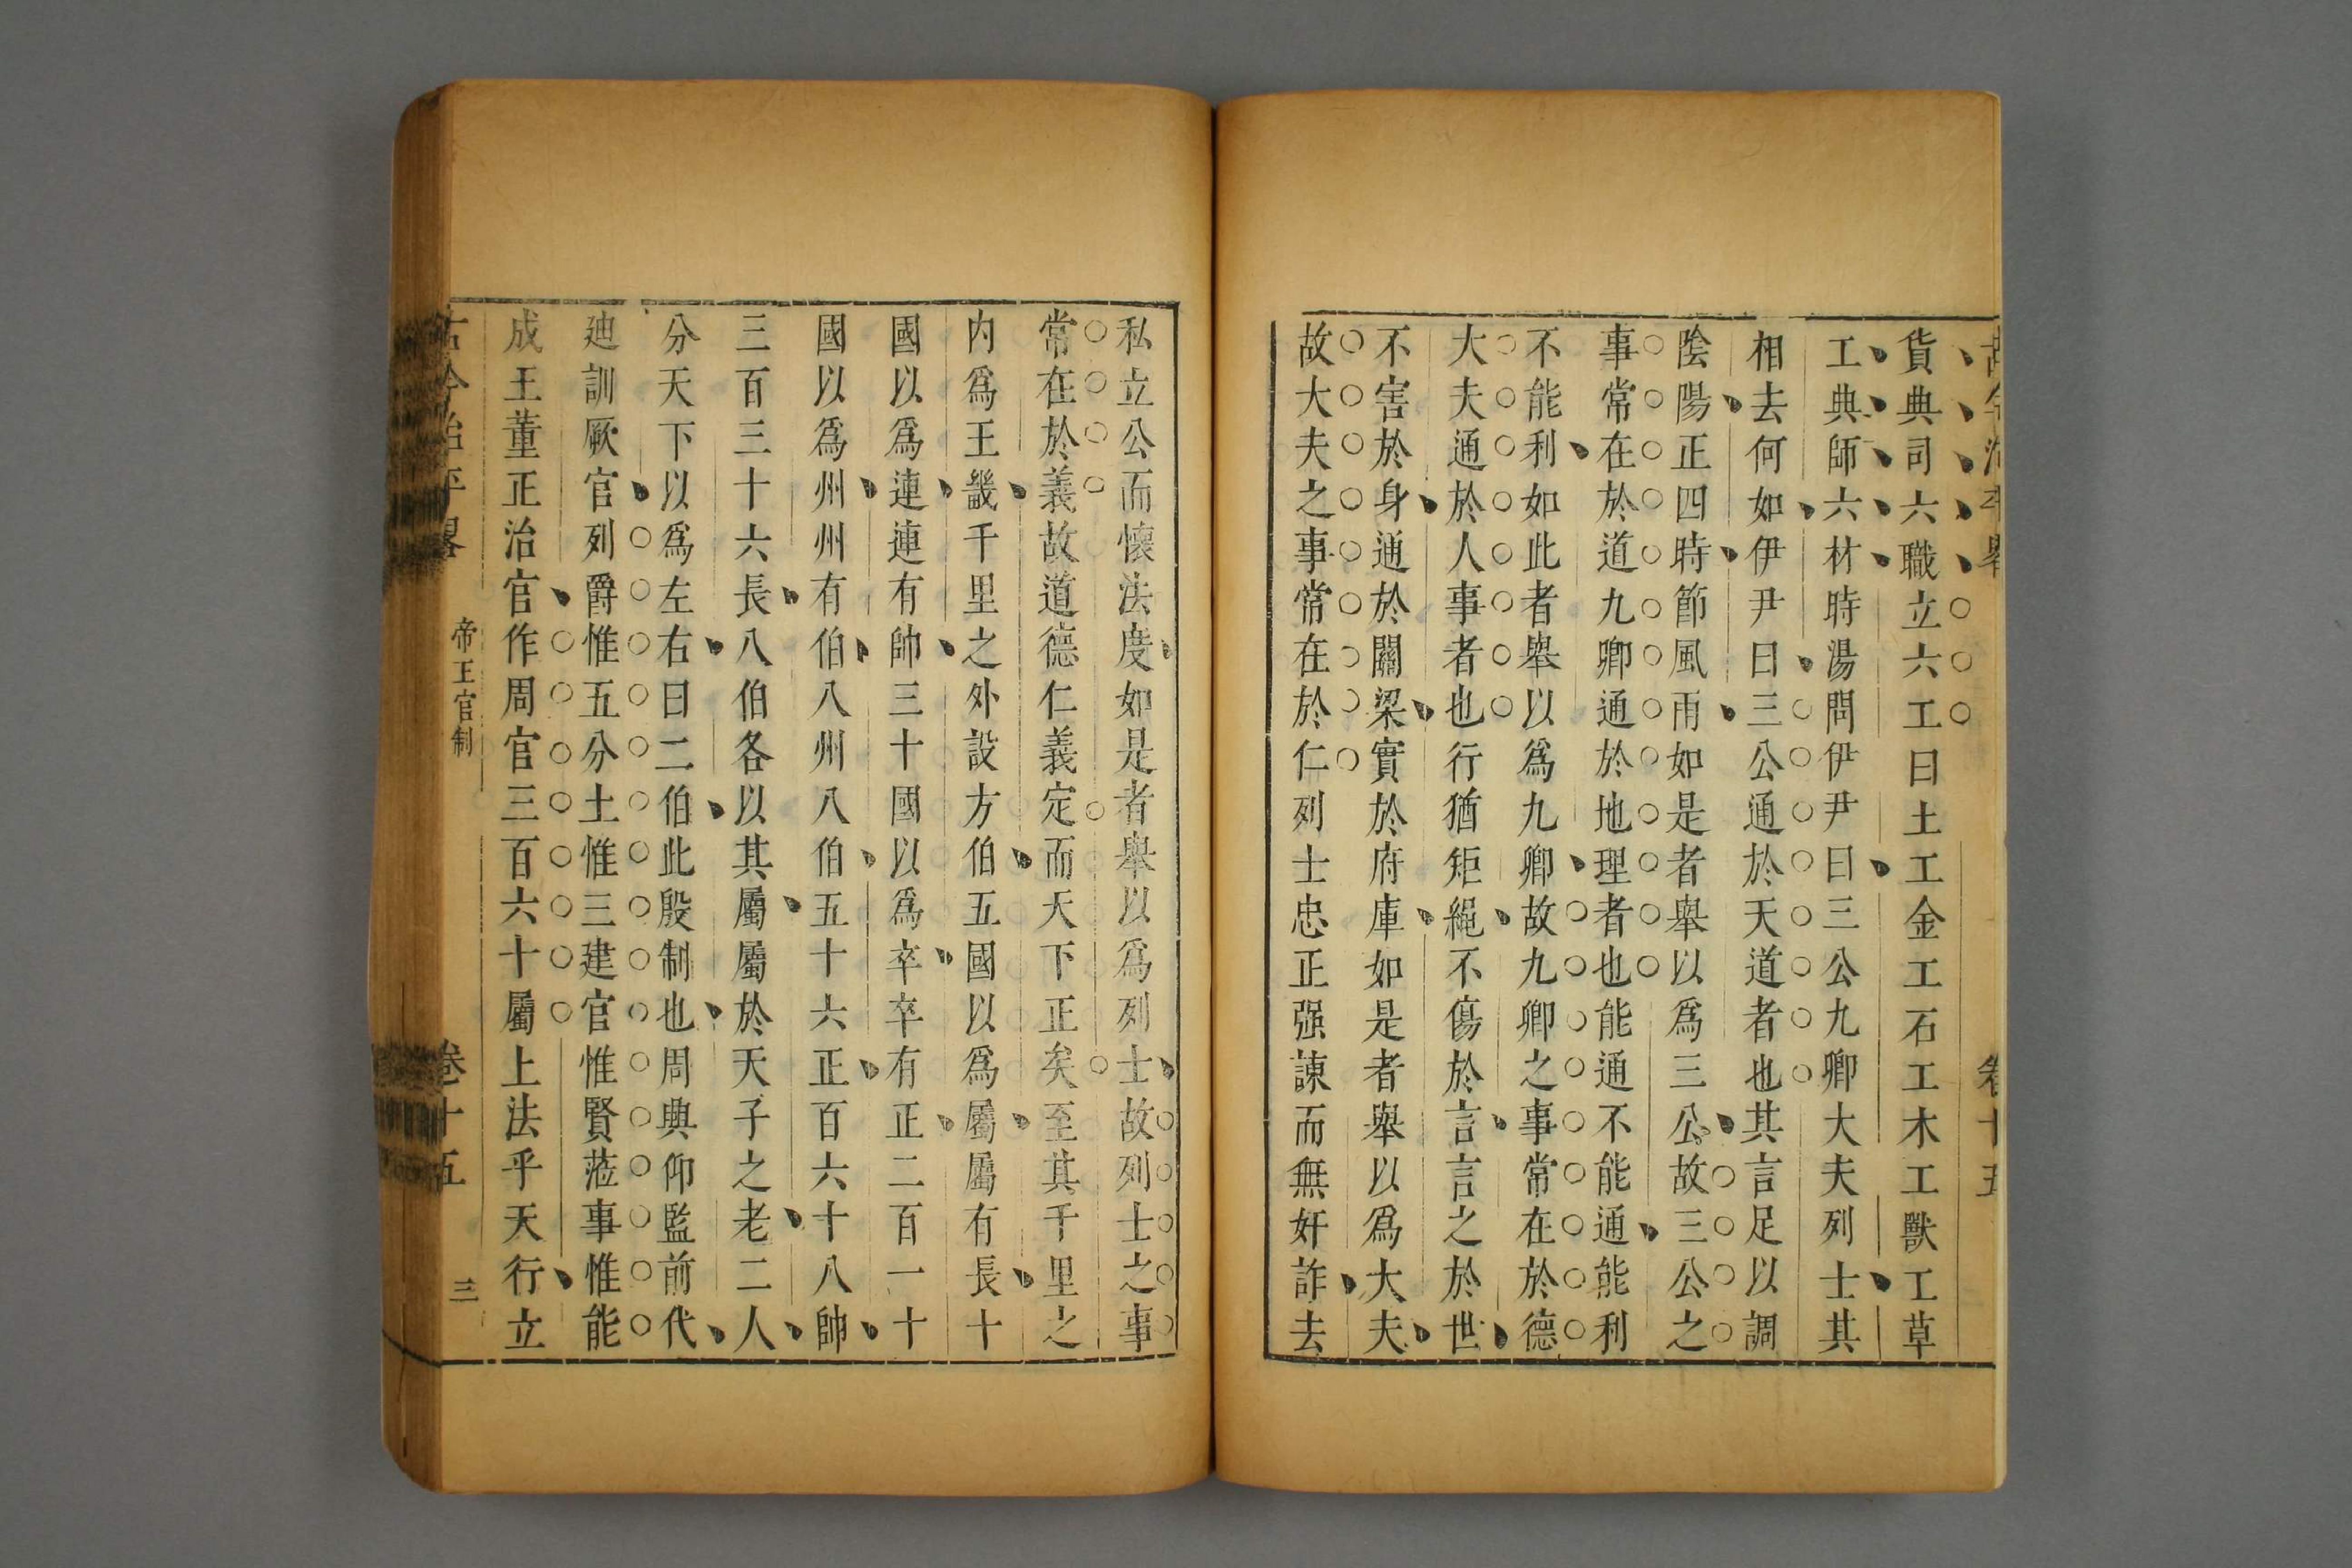 貨典司六職立六工曰土工金工石工木工獸工草
工典師六材時湯問伊尹曰三公九卿大夫列士其
相去何如伊尹曰三公通於天道者也其言足以調
陰陽正四時節風雨如是者舉以爲三公故三公之
事常在於道九卿通於地理者也能通不能通能利
不能利如此者舉以爲九卿故九卿之事常在於德
大夫通於人事者也行猶矩繩不傷於言言之於世
不害於身通於關梁實於府庫如是者舉以爲大夫
故大夫之事常在於仁列士忠正强諫而無奸詐去
私立公而懷法度如是者舉以爲列士故列士之事
常在於義故道德仁義定而天下正矣至其千里之
内爲王畿千里之外設方伯五國以爲屬屬有長十
國以爲連連有帥三十國以爲卒卒有正二百一十
國以爲州州有伯八州八伯五十六正百六十八帥
三百三十六長八伯各以其屬屬於天子之老二人
分天下以爲左右曰二伯此殷制也周典仰監前代
廸訓厥官列爵惟五分土惟三建官惟賢蒞事惟能
成王董正治官作周官三百六十屬上法乎天行立
古今治平畧 帝王官制 卷十五 三